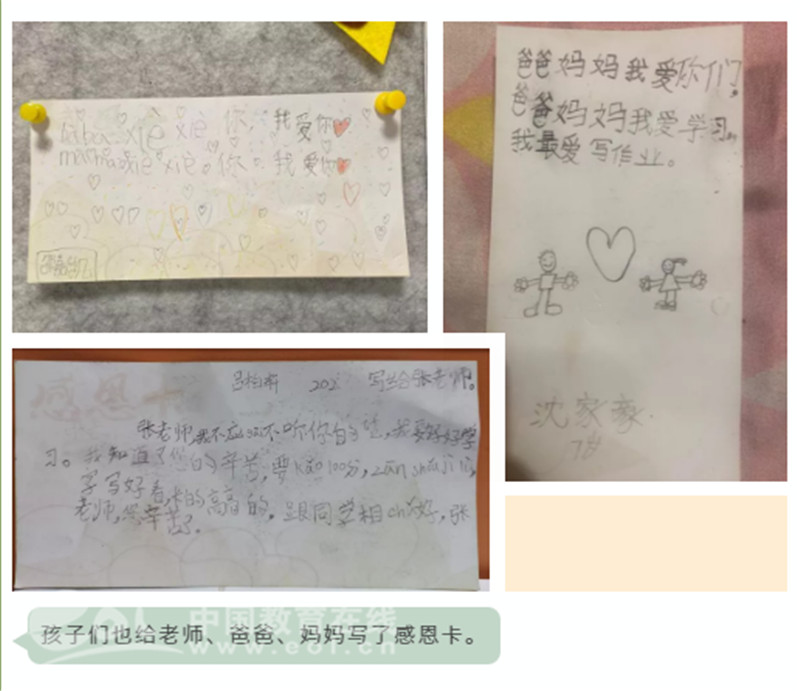 baba xiè xiè 你，我爱你
mama xiè xiè。你。我爱你
爸爸妈妈我爱你们，
爸爸妈妈我爱学习。
我最爱写作业。
沈家豪
7岁
感恩卡
写给张老师。
张老师，我不应该不听你的话，我要好好学
习。我知道了您的辛苦，要kǎo100分，
字写好看，长的高高的。跟同学相chǔ好，张
老师，您辛苦了。
中国教育在线
www.eol.cn
孩子们也给老师、爸爸、妈妈写了感恩卡。